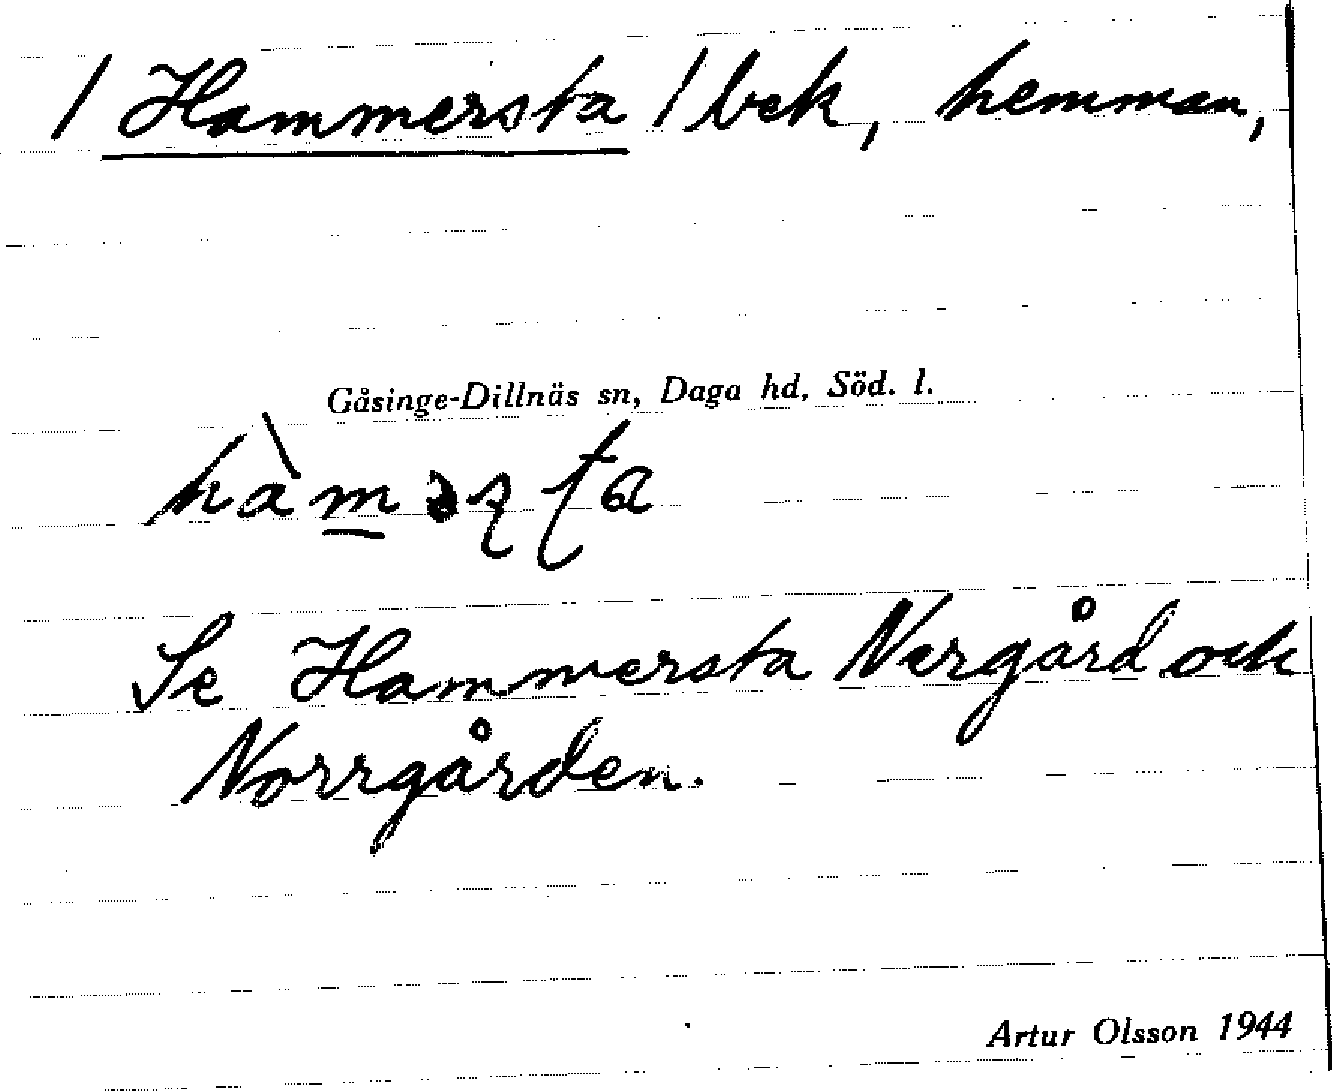 / Hammersta / bek, hemman,
Gåsinge-Dillnäs sn, Daga hd, Söd. l.
Se Hammersta Nergård och
Norrgården.
Artur Olsson 1944